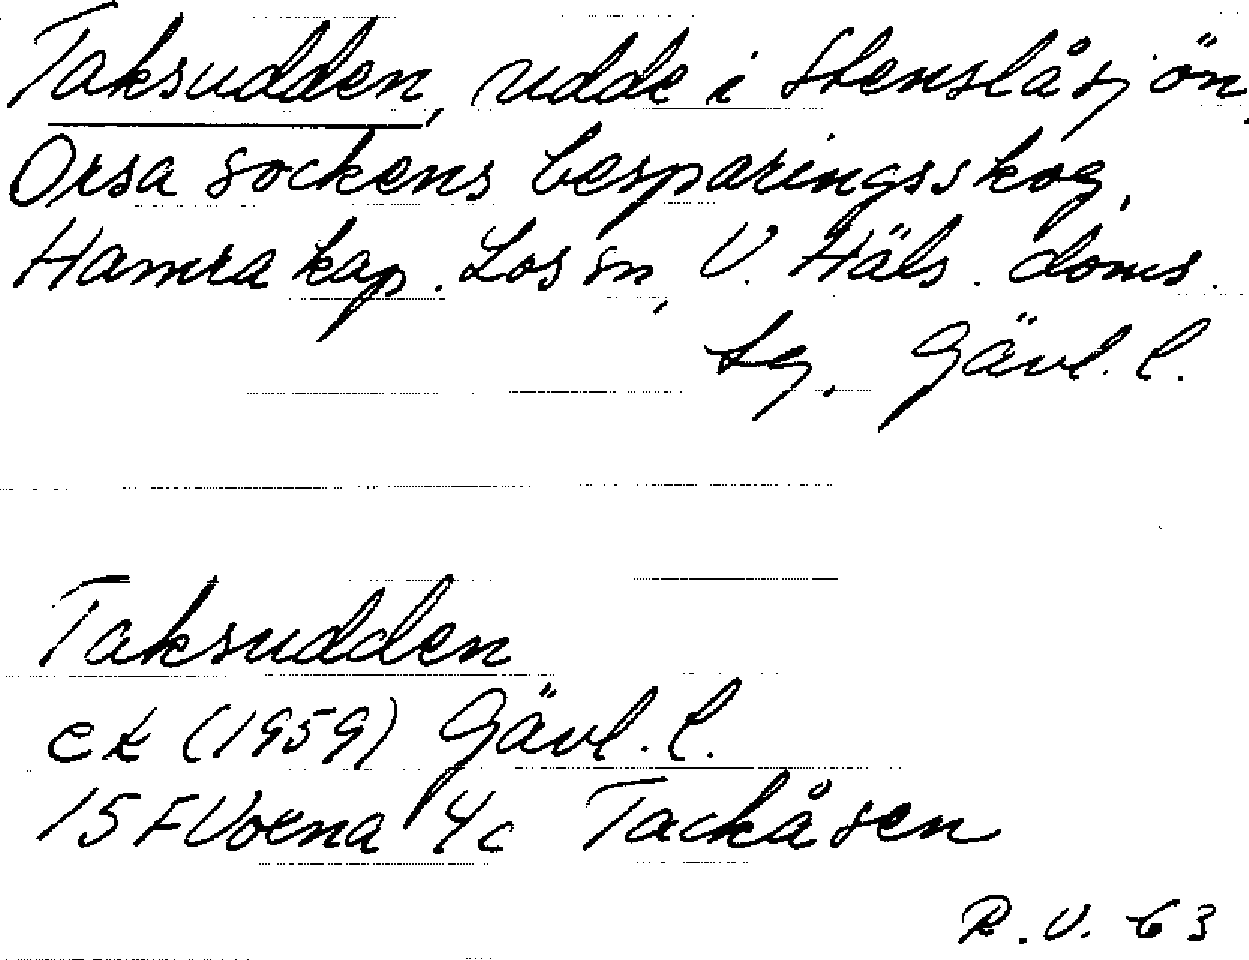 Taksudden, udde i Stenslåsjön,
Orsa sockens besparingsskog,
Hamra kap. Los sn, V. Häls. doms.
sg, Gävl. l.
Taksudden
ek (1959) Gävl. l.
15 F Voxna 4c Tackåsen
R. V. 63